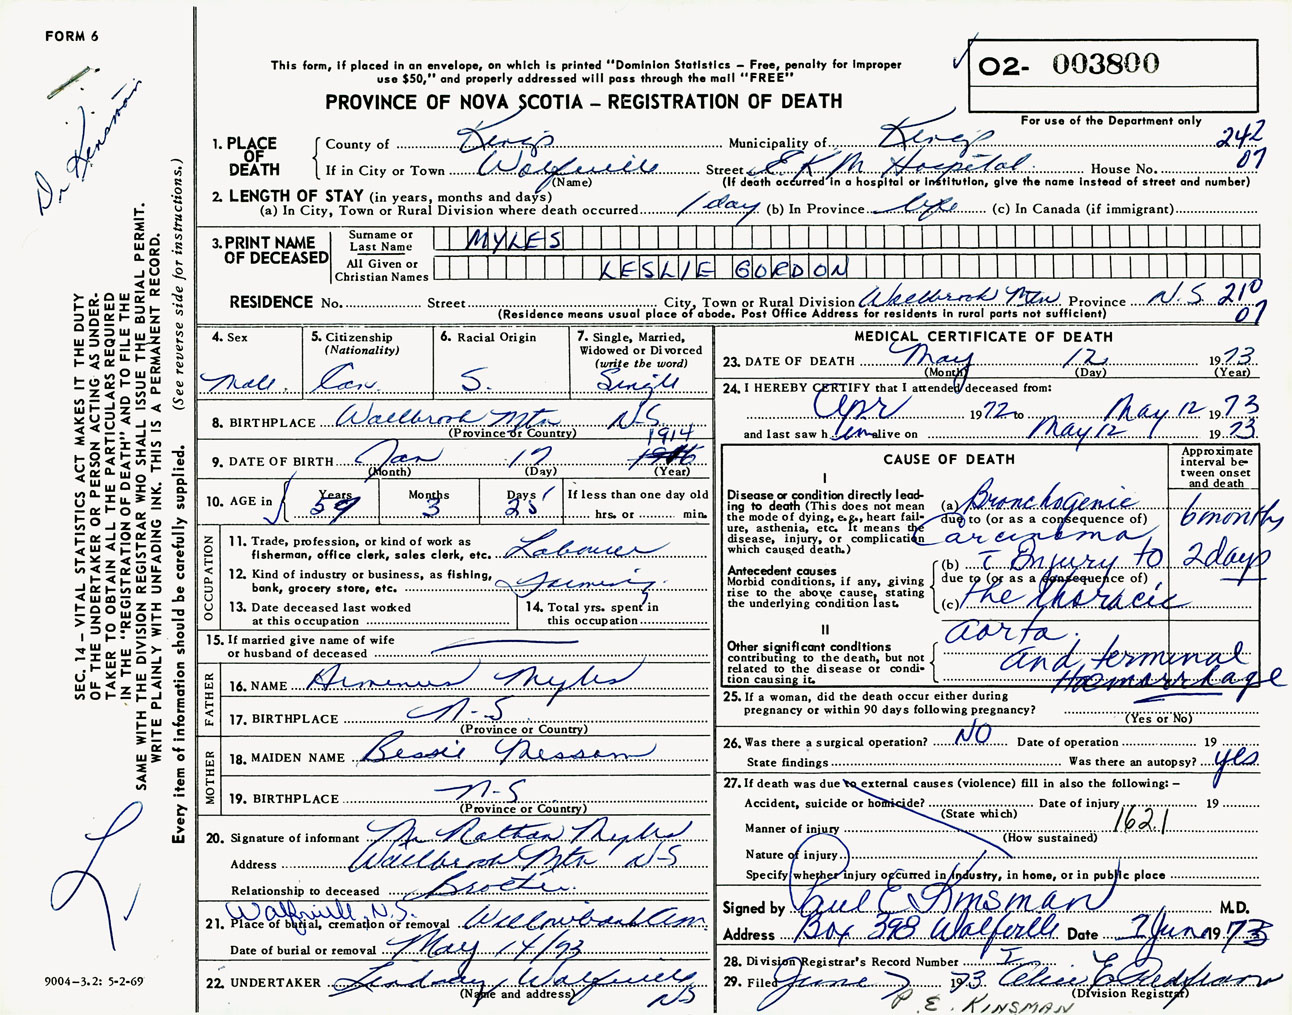 FORM 6
Dr. Kinsman
This form, if placed in an envelope, on which is printed "Dominion Statistics – Free, penalty for improper
use $50," and properly addressed will pass through the mail "FREE"
PROVINCE OF NOVA SCOTIA – REGISTRATION OF DEATH
02- 003800
For use of the Department only
1. PLACE OF DEATH
County of Kings Municipality of Kings 242
If in City or Town Wolfville Street E K M Hospital House No. 07
(Name) (If death occurred in a hospital or institution, give the name instead of street and number)
2. LENGTH OF STAY (in years, months and days)
(a) In City, Town or Rural Division where death occurred 1 day (b) In Province life (c) In Canada (if immigrant)
3. PRINT NAME OF DECEASED
Surname or Last Name MYLES
All Given or Christian Names LESLIE GORDON
RESIDENCE No. Street City, Town or Rural Division Wallbrook Mtn Province N.S. 210
(Residence means usual place of abode. Post Office Address for residents in rural parts not sufficient) 07
4. Sex Male.
5. Citizenship (Nationality) Can.
6. Racial Origin S.
7. Single, Married, Widowed or Divorced (write the word) Single
8. BIRTHPLACE Wallbrook Mtn N.S.
(Province or Country)
9. DATE OF BIRTH Jan 17 1914
(Month) (Day) (Year)
10. AGE in Years 59 Months 3 Days 25 If less than one day old
hrs. or min.
OCCUPATION
11. Trade, profession, or kind of work as
fisherman, office clerk, sales clerk, etc. Labourer
12. Kind of industry or business, as fishing,
bank, grocery store, etc. Farming.
13. Date deceased last worked
at this occupation
14. Total yrs. spent in
this occupation
15. If married give name of wife
or husband of deceased
FATHER
16. NAME Myles
17. BIRTHPLACE N-S
(Province or Country)
MOTHER
18. MAIDEN NAME Bessie
19. BIRTHPLACE N-S
(Province or Country)
20. Signature of informant Mr Nathan Myles
Address Wallbrook Mtn N-S
Relationship to deceased Brother.
Wolfville, N.S.
21. Place of burial, cremation or removal Willowbank Cem.
Date of burial or removal May 14/73
22. UNDERTAKER Lindsay Wolfville
(Name and address) NS
MEDICAL CERTIFICATE OF DEATH
23. DATE OF DEATH May 12 1973
(Month) (Day) (Year)
24. I HEREBY CERTIFY that I attended deceased from:
Apr 1972 to May 12 1973
and last saw him alive on May 12 1973
CAUSE OF DEATH
Approximate interval between onset and death
I
Disease or condition directly leading to death (This does not mean
the mode of dying, e.g., heart failure, asthenia, etc. It means the
disease, injury, or complication
which caused death.)
(a) Bronchogenic
due to (or as a consequence of) 6 months
Carcinoma
Antecedent causes
Morbid conditions, if any, giving
rise to the above cause, stating
the underlying condition last.
(b) Injury to 2 days
due to (or as a consequence of)
(c) the thoracic
II
Other significant conditions
contributing to the death, but not
related to the disease or condition causing it.
aorta.
and terminal
Haemorrhage
25. If a woman, did the death occur either during
pregnancy or within 90 days following pregnancy?
(Yes or No)
26. Was there a surgical operation? NO Date of operation 19
State findings Was there an autopsy? yes
27. If death was due to external causes (violence) fill in also the following: –
Accident, suicide or homicide? Date of injury 19
(State which)
Manner of injury 162.1
(How sustained)
Nature of injury
Specify whether injury occurred in industry, in home, or in public place
Signed by Paul E. Kinsman M.D.
Address Box 398 Wolfville Date 7 June 1973
28. Division Registrar's Record Number
29. Filed June 7 1973
(Division Registrar)
P. E. KINSMAN
SEC. 14 – VITAL STATISTICS ACT MAKES IT THE DUTY
OF THE UNDERTAKER OR PERSON ACTING AS UNDERTAKER TO OBTAIN ALL THE PARTICULARS REQUIRED
IN THE "REGISTRATION OF DEATH" AND TO FILE THE
SAME WITH THE DIVISION REGISTRAR WHO SHALL ISSUE THE BURIAL PERMIT.
WRITE PLAINLY WITH UNFADING INK. THIS IS A PERMANENT RECORD.
Every item of information should be carefully supplied. (See reverse side for instructions.)
9004–3.2: 5-2-69